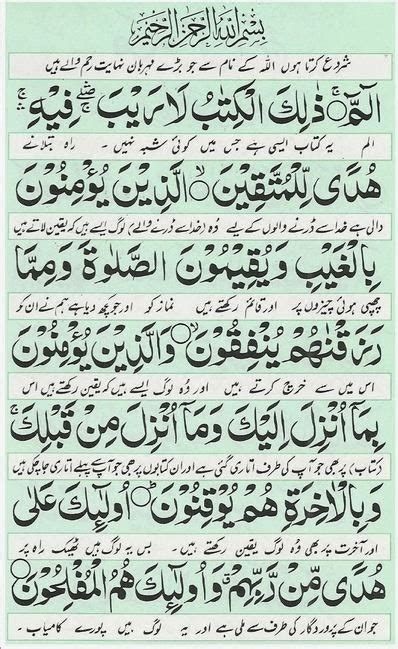 بِسْمِ اللهِ الرَّحْمٰنِ الرَّحِيْمِ
شروع کرتا ہوں اللہ کے نام سے جو بڑے مہربان نہایت رحم والے ہیں
الٓمّٓ ۚ ذٰلِكَ الْكِتٰبُ لَا رَيْبَ ۛۖ فِيْهِ ۛۚ
الم یہ کتاب ایسی ہے جس میں کوئی شبہ نہیں ۔ راہ بتلانے
هُدًى لِّلْمُتَّقِيْنَ ۙ الَّذِيْنَ يُؤْمِنُوْنَ
والی ہے خدا سے ڈرنے والوں کے لیے وُہ (خدا سے ڈرنے والے) لوگ ایسے ہیں کہ یقین لاتے ہیں
بِالْغَيْبِ وَيُقِيْمُوْنَ الصَّلٰوةَ وَمِمَّا
چھپی ہوئی چیزوں پر اور قائم رکھتے ہیں نماز کو اور جو کچھ دیا ہے ہم نے ان کو
رَزَقْنٰهُمْ يُنْفِقُوْنَ ۙ وَالَّذِيْنَ يُؤْمِنُوْنَ
اس میں سے خرچ کرتے ہیں اور وُہ لوگ ایسے ہیں کہ یقین رکھتے ہیں اس
بِمَآ اُنْزِلَ اِلَيْكَ وَمَآ اُنْزِلَ مِنْ قَبْلِكَ ۚ
(کتاب) پر بھی جو آپ کی طرف اتاری گئی ہے اور ان کتابوں پر بھی جو آپ سے پہلے اتاری جا چکی ہیں
وَبِالْاٰخِرَةِ هُمْ يُوْقِنُوْنَ ؕ اُولٰٓئِكَ عَلٰى
اور آخرت پر بھی وُہ لوگ یقین رکھتے ہیں ۔ بس یہ لوگ ہیں ٹھیک راہ پر
هُدًى مِّنْ رَّبِّهِمْ ۗ وَاُولٰٓئِكَ هُمُ الْمُفْلِحُوْنَ
جو ان کے پروردگار کی طرف سے ملی ہے اور یہ لوگ ہیں پورے کامیاب ۔